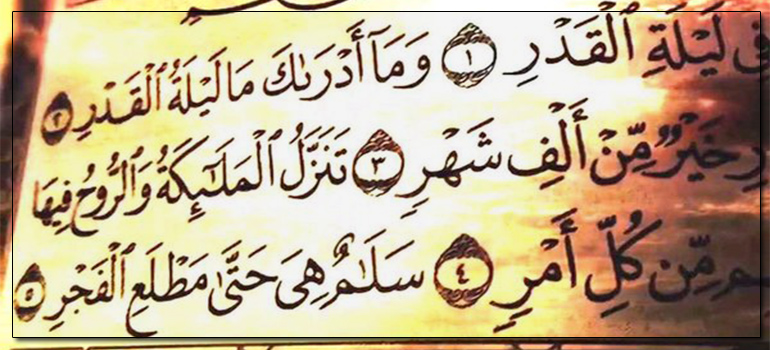 فِى لَيْلَةِ ٱلْقَدْرِ ١ وَمَآ أَدْرَىٰكَ مَا لَيْلَةُ ٱلْقَدْرِ ٢
خَيْرٌ مِّنْ أَلْفِ شَهْرٍ ٣ تَنَزَّلُ ٱلْمَلَـٰٓئِكَةُ وَٱلرُّوحُ فِيهَا
مِّن كُلِّ أَمْرٍ ٤ سَلَـٰمٌ هِىَ حَتَّىٰ مَطْلَعِ ٱلْفَجْرِ ٥